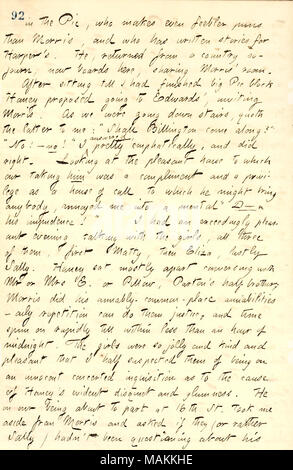 92
in the Pic, who makes even feebler puns
than Morris, and who has written stories for
Harper's. He, returned from a country so-
journ, now boards here, sharing Morris' room.
After sitting till I had finished big Pic block
Haney proposed going to Edwards', inviting
Morris. As we were going down stairs, quoth
the latter to me; "Shall Billington come along?"
"No! - no!" I answered pretty emphatically, and did
right. Looking at the pleasant house to which
our taking him was a compliment and a privi-
lege as a house of call to which he might bring
anybody, annoyed me into a mental "D—n
his impudence!" I had an exceedingly pleas-
ant evening talking with the girls, all three
of 'em, first Matty, then Eliza, lastly
Sally. Haney sat mostly apart conversing with
Mr or Mrs E. or Pillow, Parton's half brother.
Morris did his amiably-common-place amiabilities
- only repetition can do them justice, and time
spun on rapidly till within less than an hour of
midnight. The girls were so jolly and kind and
pleasant that I half suspected them of being on
an innocent concerted inquisition as to the cause
of Haney's evident disquiet and glumness. He
on our being about to part at 16th St. took me
aside from Morris and asked if they, (or rather
Sally,) hadn't been questioning about his
alamy
Image ID: MAKKHE
www.alamy.com